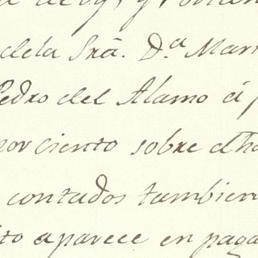 dela Srã. D.ª Mar
Pedro del Alamo á p
por ciento sobre dha
contados tambien
to aparece en paga